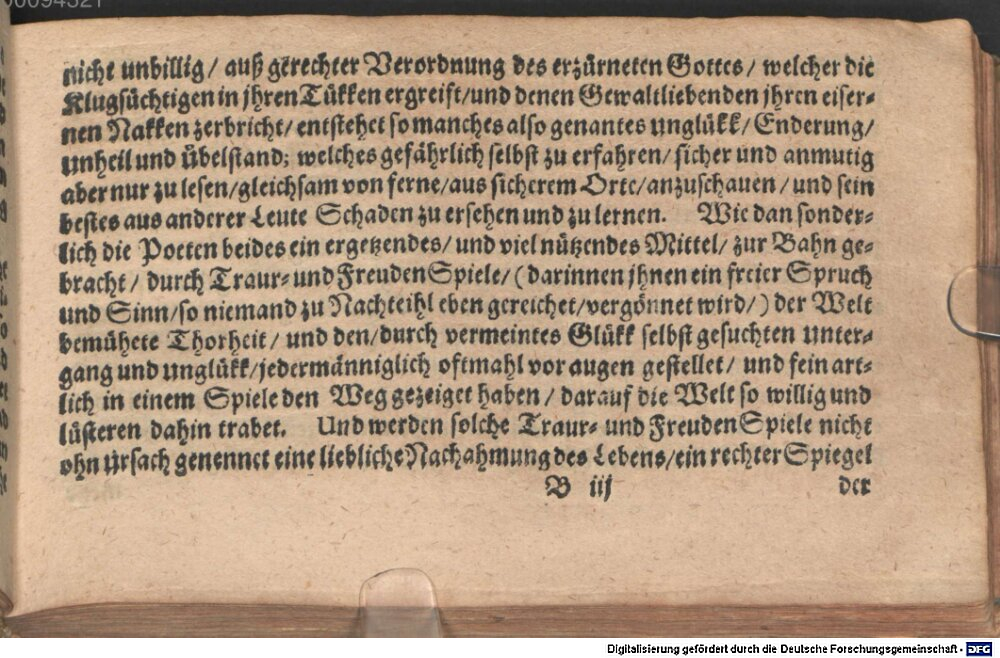 nicht unbillig/ auß gerechter Verordnung des erzürneten Gottes/ welcher die
Klugsüchtigen in jhren Tükken ergreift/und denen Gewaltliebenden jhren eiser-
nen Nakken zerbricht/ entstehet so manches also genantes unglükk/ Enderung/
unheil und übelstand; welches gefährlich selbst zu erfahren/ sicher und anmutig
aber nur zu lesen/gleichsam von ferne/aus sicherem Orte/anzuschauen/ und sein
bestes aus anderer Leute Schaden zu ersehen und zu lernen. Wie dan sonder-
lich die Poeten beides ein ergetzendes/ und viel nützendes Mittel/ zur Bahn ge-
bracht/ durch Traur- und Freuden Spiele/ (darinnen jhnen ein freier Spruch
und Sinn/so niemand zu Nachteihl eben gereichet/vergönnet wird/) der Welt
bemühete Thorheit/ und den/durch vermeintes Glükk selbst gesuchten unter-
gang und unglükk/jedermänniglich oftmahl vor augen gestellet/ und fein art-
lich in einem Spiele den Weg gezeiget haben/ darauf die Welt so willig und
lüsteren dahin trabet. Und werden solche Traur- und Freuden Spiele nicht
ohn ursach genennet eine liebliche Nachahmung des Lebens/ein rechter Spiegel
B iij der
Digitalisierung gefördert durch die Deutsche Forschungsgemeinschaft - DFG